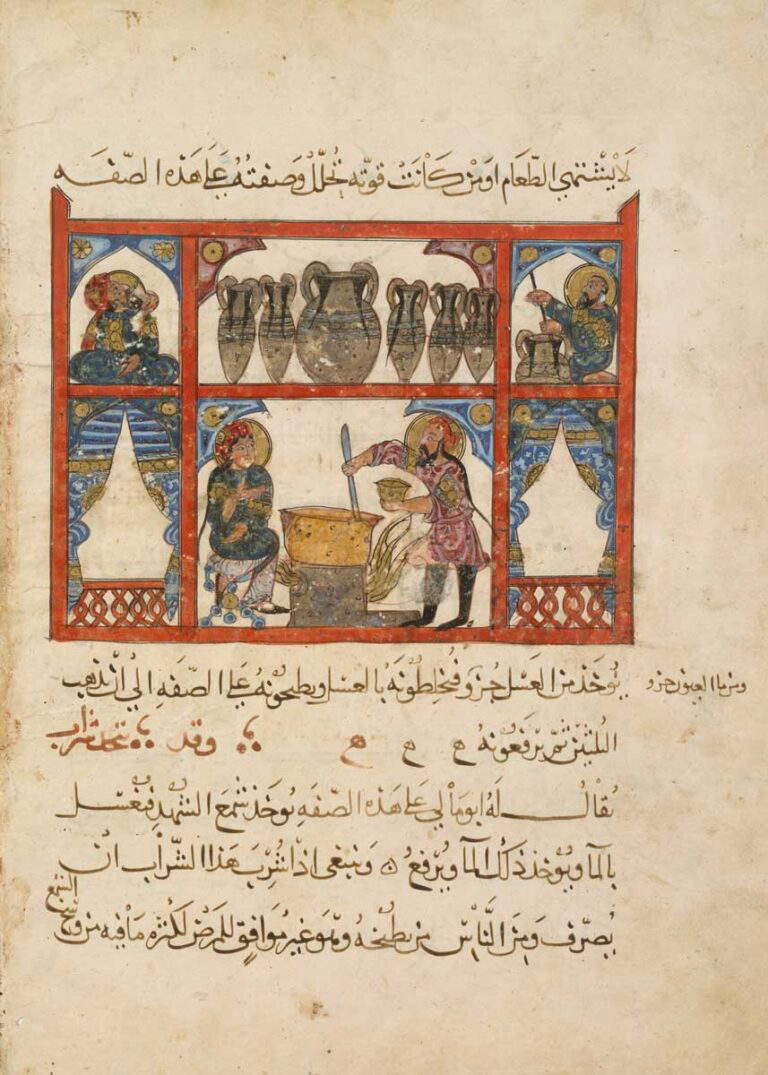 لا يشتهي الطعام اومن كانت قوته تحلل وصفته على هذه الصفه
يوخذ من العسل جزو فيخلطونه بالعسل ويطبخونه على الصفه الي ان يذهب
ومن ما العيون جزو
الثلثين ثم يرفعونه ه ه ه وقد يتخذ شراب
يقال له ابومالي على هذه الصفه يوخذ شمع الشهد فيغسل
بالما ويوخذ ذلك الما ويرفع ۞ وينبغي اذا شرب هذا الشراب ان
يصرف ومن الناس من يطبخه وهو غير موافق للمرض لكثره ما فيه من وسخ
الشمع